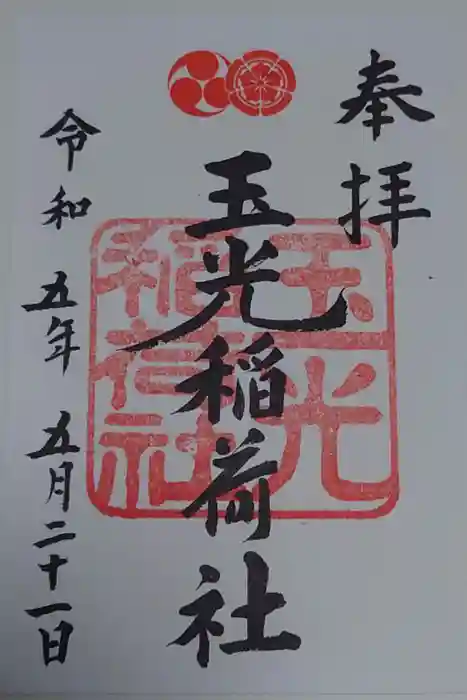 奉拝
玉光稲荷社
令和五年五月二十一日
玉光
稲荷社